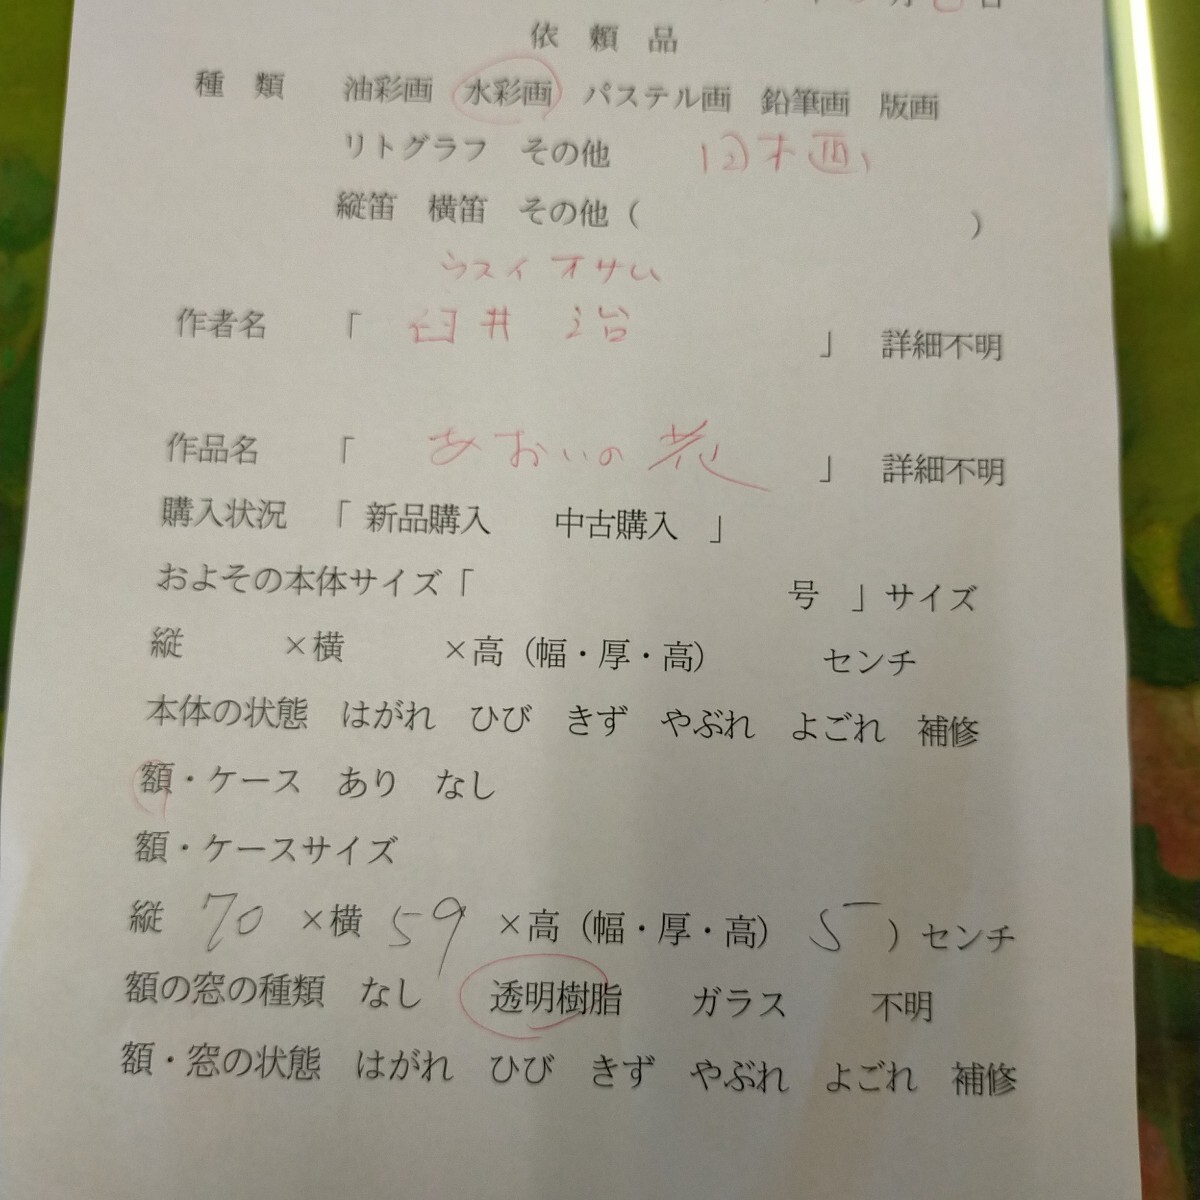 月 日
依 頼 品
種 類 油彩画 水彩画 パステル画 鉛筆画 版画
リトグラフ その他 日本画
縦笛 横笛 その他（ ）
ウスイ オサム
作者名 「 臼井 治 」 詳細不明
作品名 「 あおいの花 」 詳細不明
購入状況 「 新品購入 中古購入 」
およその本体サイズ「 号 」サイズ
縦 ×横 ×高（幅・厚・高） センチ
本体の状態 はがれ ひび きず やぶれ よごれ 補修
額・ケース あり なし
額・ケースサイズ
縦 70 ×横 59 ×高（幅・厚・高） 5 ）センチ
額の窓の種類 なし 透明樹脂 ガラス 不明
額・窓の状態 はがれ ひび きず やぶれ よごれ 補修